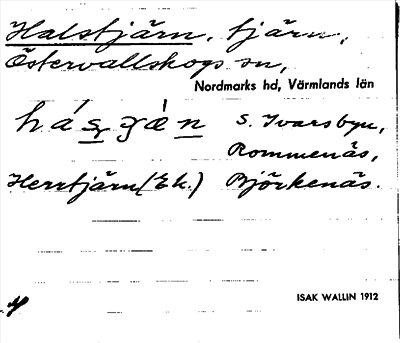 Halstjärn, tjärn,
Östervallskogs sn,
Nordmarks hd, Värmlands län
S. Ivarsbyn,
Rommenäs,
Herrtjärn (Ek.) Björkenäs.
ISAK WALLIN 1912